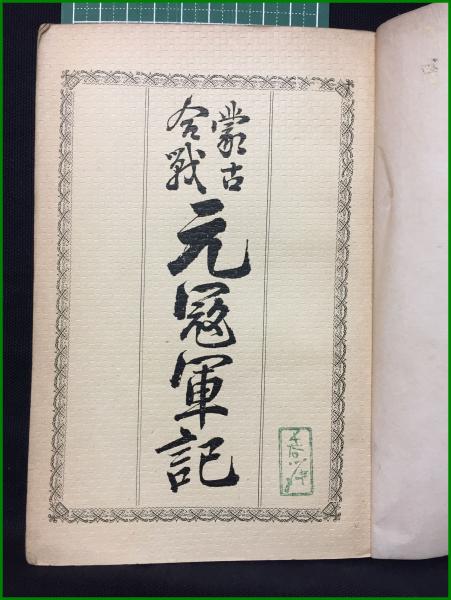 蒙古
合戰
元寇軍記